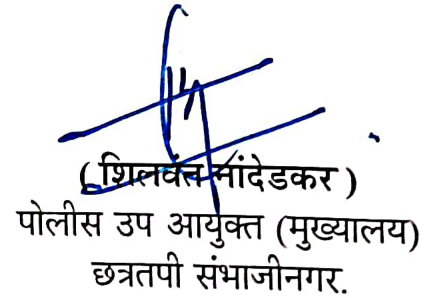 ( शिलवंत नांदेडकर )
पोलीस उप आयुक्त (मुख्यालय)
छत्रतपी संभाजीनगर.